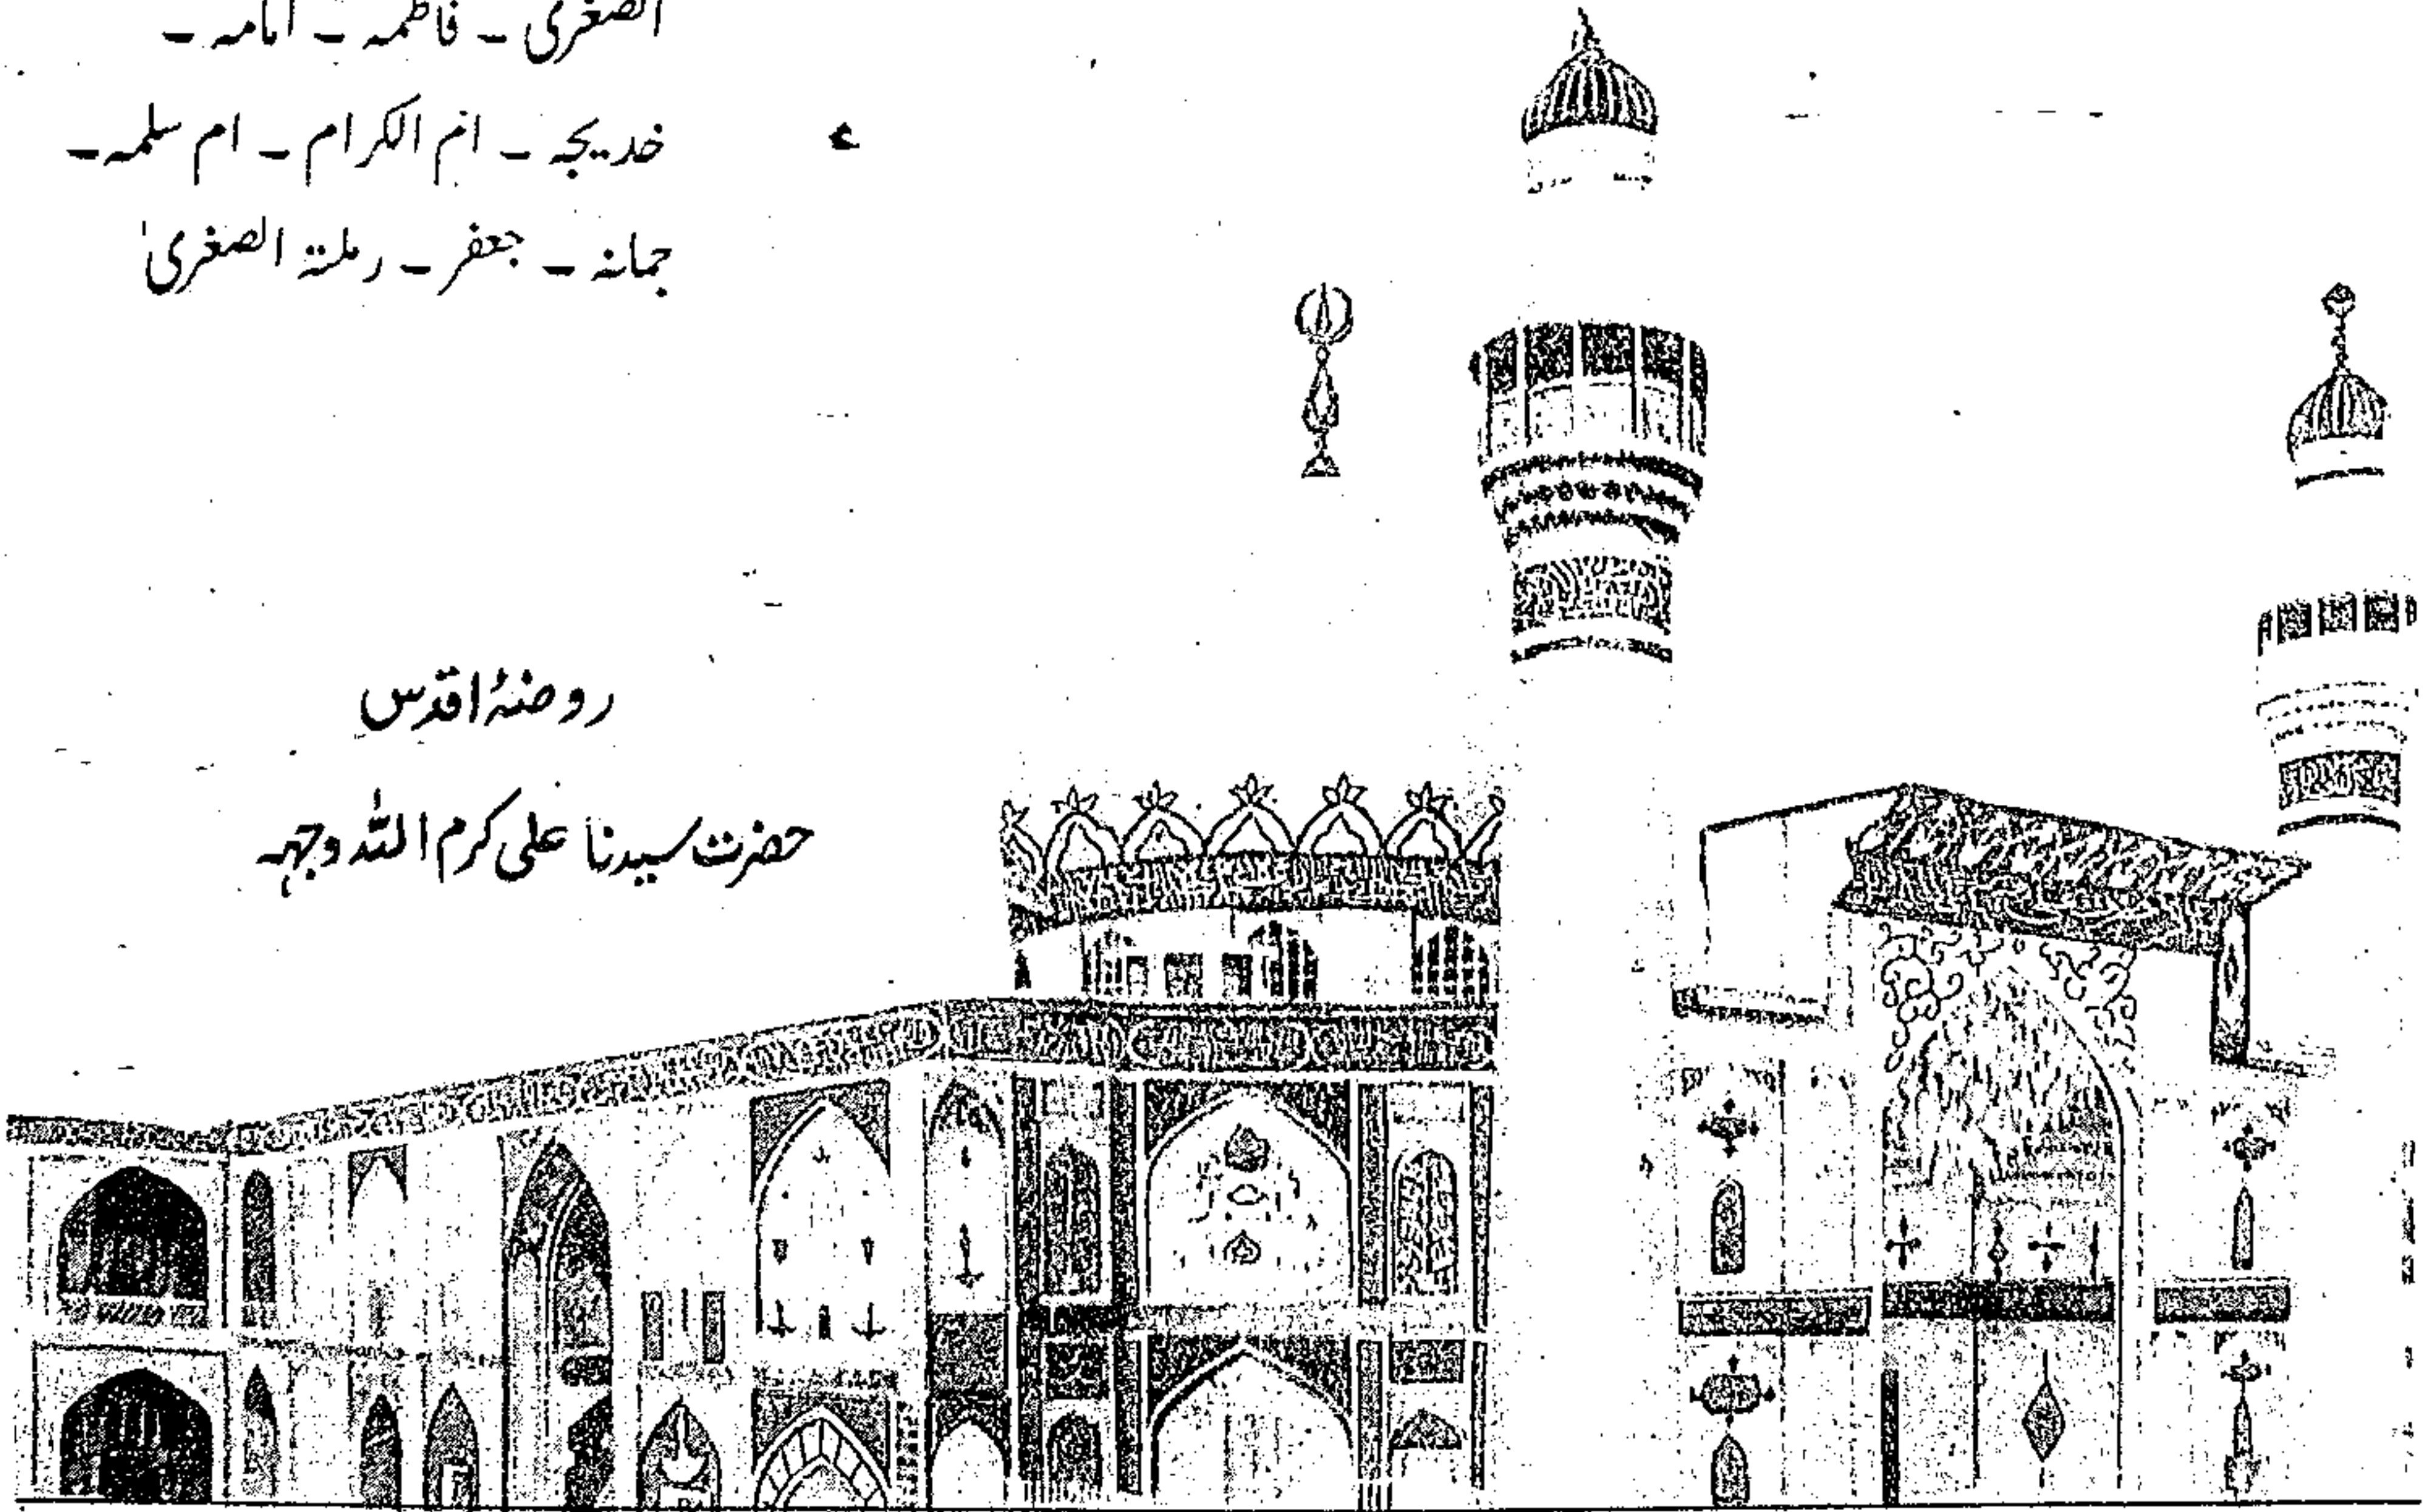 الصغریٰ ۔ فاطمہ ۔ امامہ ۔
خدیجہ ۔ ام الکرام ۔ ام سلمہ ۔
جمانہ ۔ جعفر ۔ رملتہ الصغریٰ
روضۂ اقدس
حضرت سیدنا علی کرم اللہ وجہہ